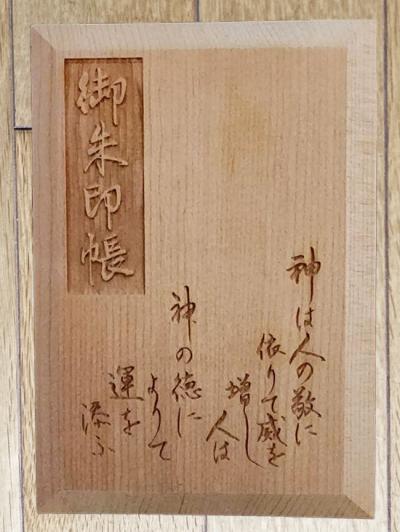 御朱印帳
神は人の敬に
依りて威を
増し
人は
神の徳に
よりて
運を
添ふ